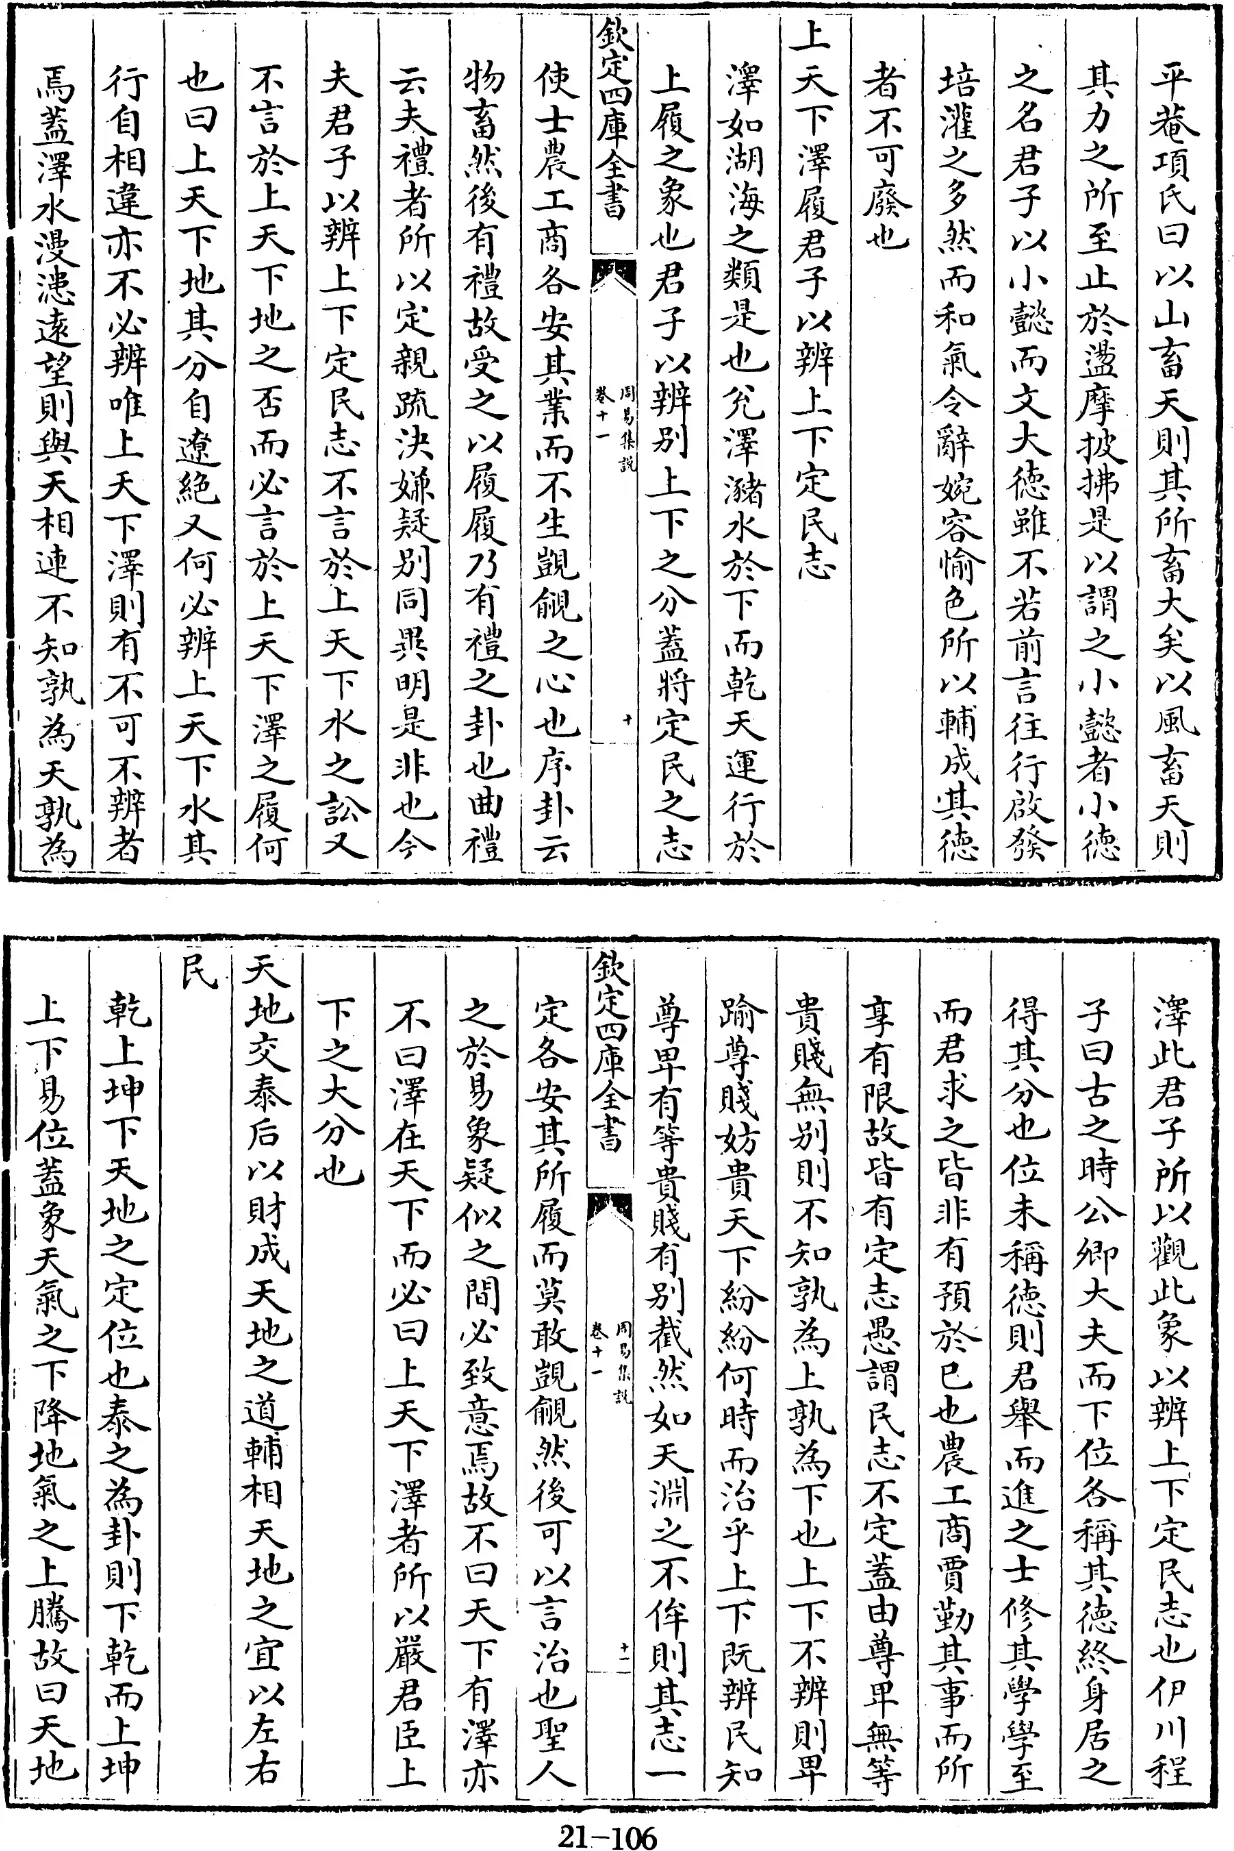 平菴項氏曰以山畜天則其所畜大矣以風畜天則
其力之所至止於盪摩披拂是以謂之小懿者小德
之名君子以小懿而文大德雖不若前言往行啟發
培灌之多然而和氣令辭婉容愉色所以輔成其德
者不可廢也
上天下澤履君子以辨上下定民志
澤如湖海之類是也兊澤瀦水於下而乾天運行於
上履之象也君子以辨別上下之分蓋將定民之志
欽定四庫全書
周易集說
卷十一
十
使士農工商各安其業而不生覬覦之心也序卦云
物畜然後有禮故受之以履履乃有禮之卦也曲禮
云夫禮者所以定親疏決嫌疑別同異明是非也今
夫君子以辨上下定民志不言於上天下水之訟又
不言於上天下地之否而必言於上天下澤之履何
也曰上天下地其分自遼絕又何必辨上天下水其
行自相違亦不必辨唯上天下澤則有不可不辨者
焉蓋澤水漫漶遠望則與天相連不知孰為天孰為
澤此君子所以觀此象以辨上下定民志也伊川程
子曰古之時公卿大夫而下位各稱其德終身居之
得其分也位未稱德則君舉而進之士修其學學至
而君求之皆非有預於已也農工商賈勤其事而所
享有限故皆有定志愚謂民志不定蓋由尊卑無等
貴賤無別則不知孰為上孰為下也上下不辨則卑
踰尊賤妨貴天下紛紛何時而治乎上下既辨民知
尊卑有等貴賤有別截然如天淵之不侔則其志一
欽定四庫全書
周易集說
卷十一
十一
定各安其所履而莫敢覬覦然後可以言治也聖人
之於易象疑似之間必致意焉故不曰天下有澤亦
不曰澤在天下而必曰上天下澤者所以嚴君臣上
下之大分也
天地交泰后以財成天地之道輔相天地之宜以左右
民
乾上坤下天地之定位也泰之為卦則下乾而上坤
上下易位蓋象天氣之下降地氣之上騰故曰天地
21-106